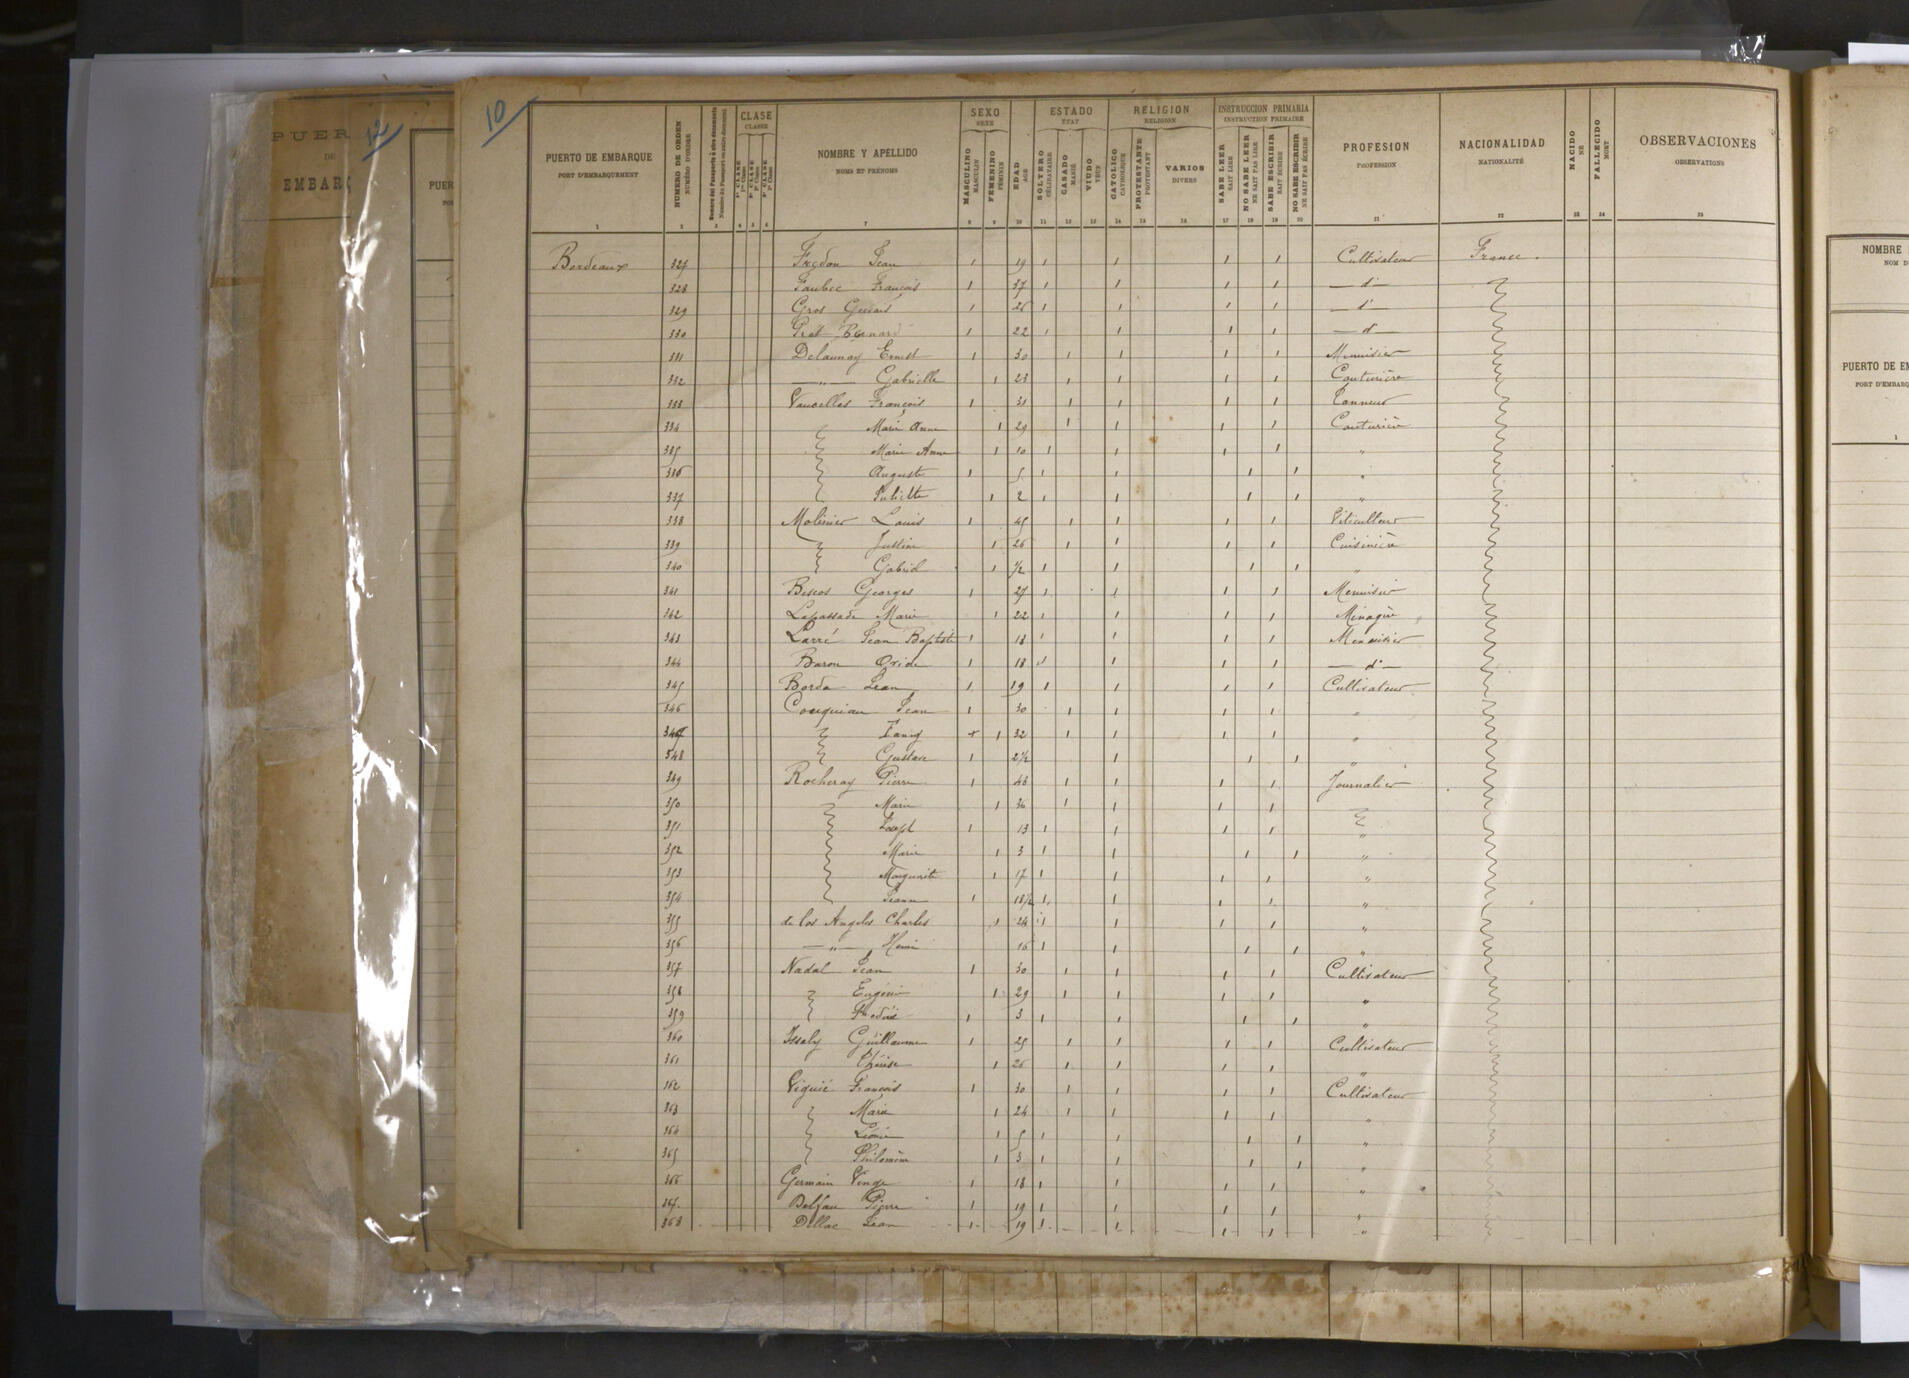 10
12
PUER
DE
EMBARQ
PUER
PUERTO DE EMBARQUE
PORT D'EMBARQUEMENT
NUMERO DE ORDEN
NUMÉRO D'ORDRE
CLASE
CLASSE
1ª CLASE
2ª CLASE
3ª CLASE
NOMBRE Y APELLIDO
NOMS ET PRÉNOMS
SEXO
SEXE
MASCULINO
MASCULIN
FEMENINO
FÉMININ
EDAD
AGE
ESTADO
ÉTAT
SOLTERO
CÉLIBATAIRE
CASADO
MARIÉ
VIUDO
VEUF
RELIGION
RELIGION
CATOLICO
CATHOLIQUE
PROTESTANTE
PROTESTANT
VARIOS
DIVERS
INSTRUCCION PRIMARIA
INSTRUCTION PRIMAIRE
SABE LEER
SAIT LIRE
NO SABE LEER
NE SAIT PAS LIRE
SABE ESCRIBIR
SAIT ÉCRIRE
NO SABE ESCRIBIR
NE SAIT PAS ÉCRIRE
PROFESION
PROFESSION
NACIONALIDAD
NATIONALITÉ
NACIDO
NÉ
FALLECIDO
MORT
OBSERVACIONES
OBSERVATIONS
1 2 3 4 5 6 7 8 9 10 11 12 13 14 15 16 17 18 19 20 21 22 23 24 25
Bordeaux 327 Jean 1 19 1 1 1 1 Cultivateur France.
328 Faubec François 1 37 1 1 1 1 — d° —
329 Gros 1 26 1 1 1 1 — d° —
330 Bernard 1 22 1 1 1 1 — d° —
331 Delaunay Ernest 1 30 1 1 1 1 Menuisier
332 — " — Gabrielle 1 23 1 1 1 1 Couturière
333 Vaucelles François 1 31 1 1 1 1 Tanneur
334 Marie Anne 1 29 1 1 1 1 Couturière
335 Marie Anne 1 10 1 1 1 1 "
336 Auguste 1 5 1 1 1 1 "
337 Juliette 1 2 1 1 1 1 "
338 Molinier Louis 1 45 1 1 1 1 Viticulteur
339 Justine 1 26 1 1 1 1 Cuisinière
340 Gabriel 1 1/2 1 1 1 1 "
341 Bescos Georges 1 27 1 1 1 1 Menuisier
342 Lapassade Marie 1 22 1 1 1 1 Ménagère
343 Larré Jean Baptiste 1 18 1 1 1 1 Menuisier
344 Baron Ovide 1 18 1 1 1 1 — d° —
345 Borda Jean 1 19 1 1 1 1 Cultivateur
346 Jean 1 30 1 1 1 1 "
347 Fany x 1 32 1 1 1 1 "
348 Gustave 1 2 1/2 1 1 1 "
349 Rocheray Pierre 1 43 1 1 1 1 Journalier
350 Marie 1 36 1 1 1 1
351 Joseph 1 13 1 1 1 1 "
352 Marie 1 3 1 1 1 1 "
353 Marguerite 1 17 1 1 1 1 "
354 Jeanne 1 18/2 1 1 1 1 "
355 de los Angeles Charles 1 24 1 1 1 1 "
356 — " — Henri 16 1 1 1 1 "
357 Nadal Jean 1 30 1 1 1 1 Cultivateur
358 Eugénie 1 29 1 1 1 1 "
359 1 3 1 1 1 1 "
360 Issaly Guillaume 1 25 1 1 1 1 Cultivateur
361 Thérèse 1 26 1 1 1 1 "
362 Viguié François 1 30 1 1 1 1 Cultivateur
363 Marie 1 24 1 1 1 1 "
364 Léonie 1 5 1 1 1 1 "
365 Philomène 1 3 1 1 1 1 "
366 Germain 1 18 1 1 1 1 "
367 Delfau Pierre 1 19 1 1 1 1 "
368 Dellac Jean 1 19 1 1 1 1 "
NOMBRE
NOM D
PUERTO DE EM
PORT D'EMBARQ
1